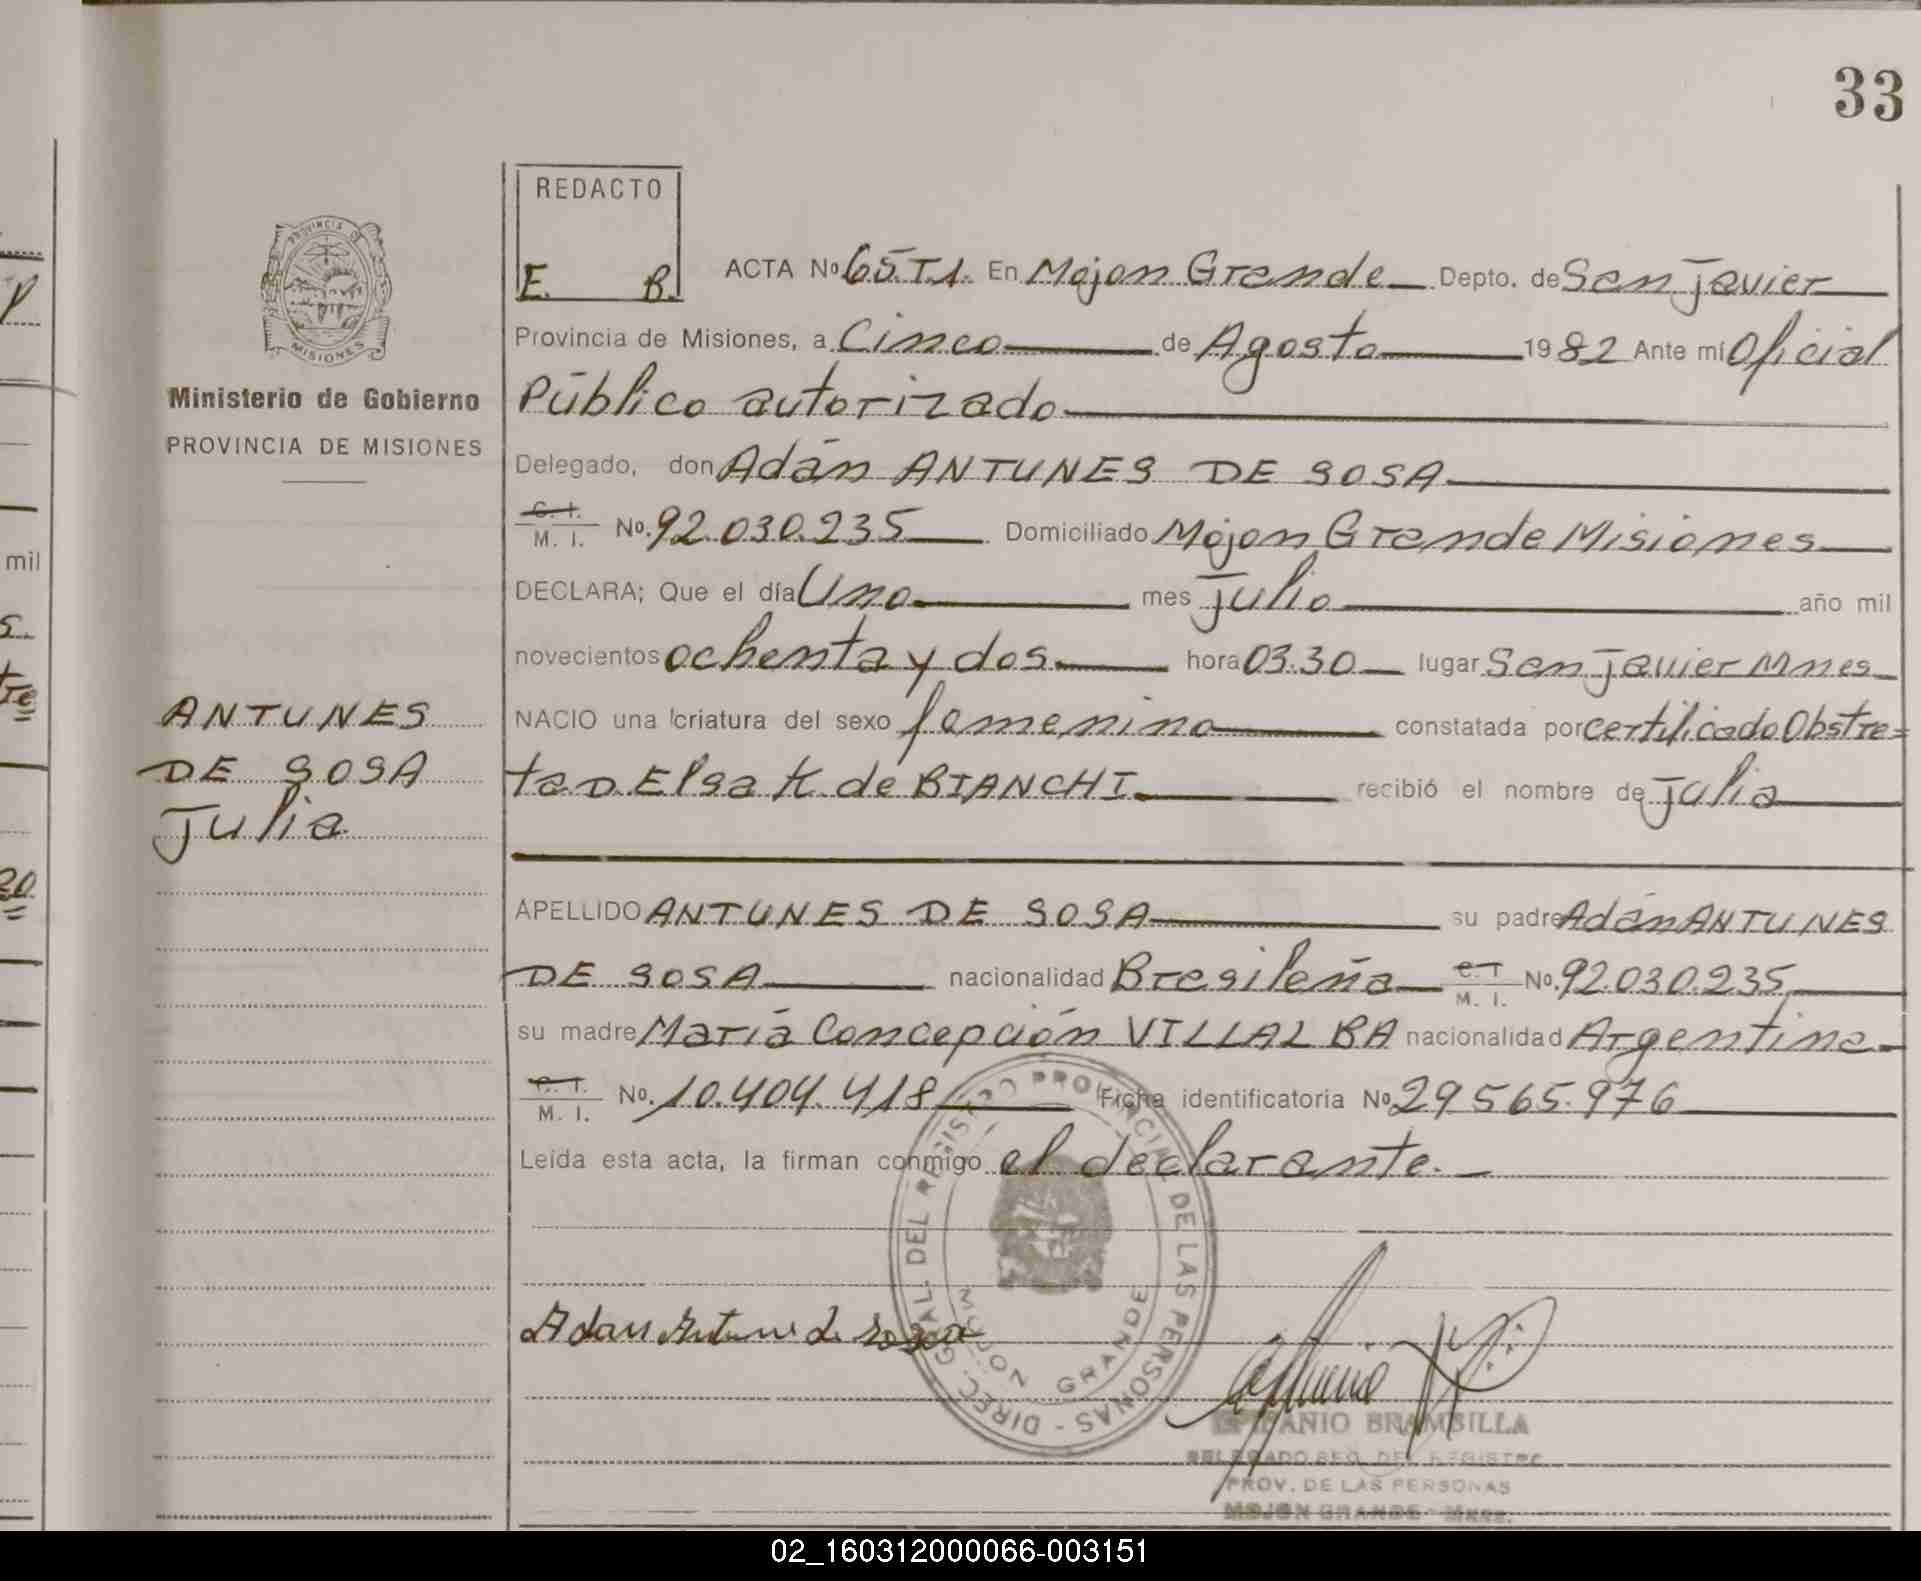 33
REDACTO
E. B.
PROVINCIA DE
MISIONES
Ministerio de Gobierno
PROVINCIA DE MISIONES
ANTUNES
DE SOSA
Julia
ACTA No 65.T1. En Mojon Grande Depto. de San Javier
Provincia de Misiones, a Cinco de Agosto 1982 Ante mí Oficial
Público autorizado
Delegado, don Adán ANTUNES DE SOSA
C. I. M. I. No. 92.030.235 Domiciliado Mojon Grande Misiones
DECLARA; Que el día Uno mes Julio año mil
novecientos ochenta y dos hora 03.30 lugar San Javier Mnes
NACIO una criatura del sexo femenino constatada por certificado Obstre=
ta D. Elsa K. de BIANCHI. recibió el nombre de Julia
APELLIDO ANTUNES DE SOSA su padre Adán ANTUNES
DE SOSA nacionalidad Bresileña C. I. M. I. No. 92.030.235
su madre María Concepción VILLALBA nacionalidad Argentina
C. I. M. I. No. 10.404.418 Ficha identificatoria No 29565.976
Leída esta acta, la firman conmigo el declarante.
DIREC. GRAL. DEL REGISTRO PROVINCIAL DE LAS PERSONAS -
MOJON GRANDE
Adan Antune de sosa
EPIFANIO BRAMBILLA
DELEGADO REG. DEL REGISTRO
PROV. DE LAS PERSONAS
MOJON GRANDE - Mnes.
mil
02_160312000066-003151